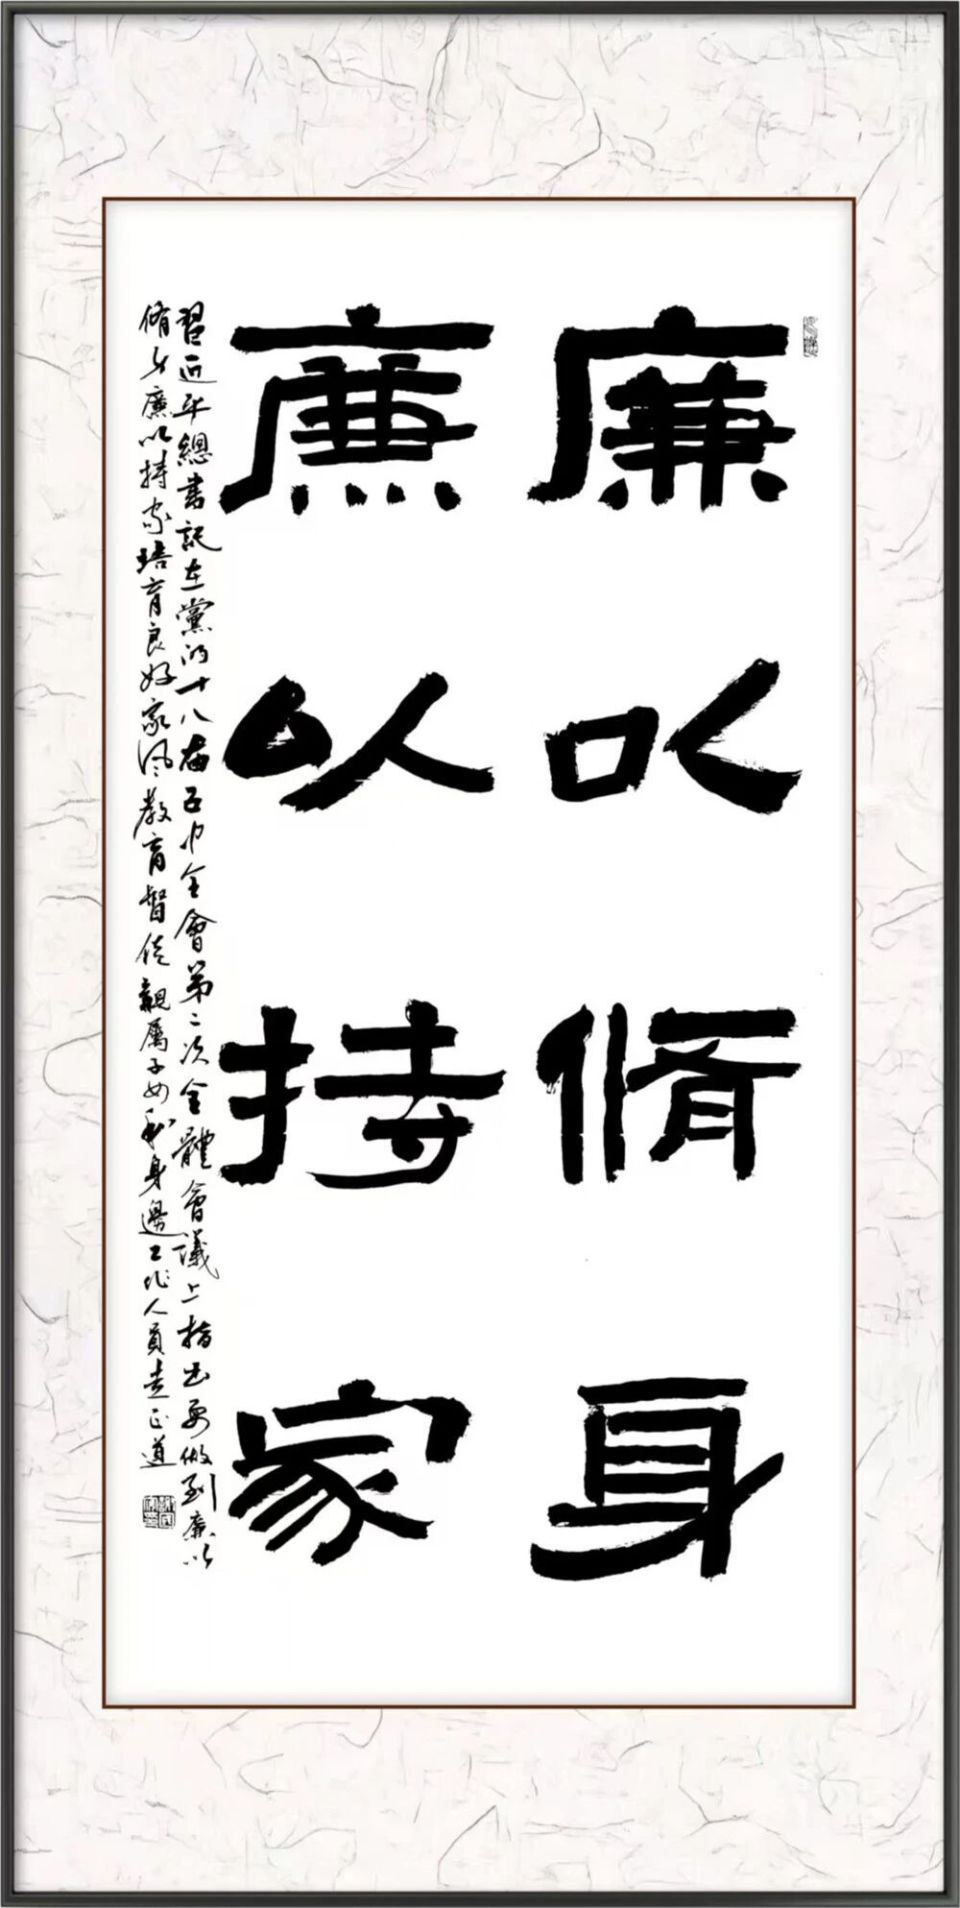 廉以脩身
廉以持家
習近平總書記在黨的十八届五中全會第二次全體會議上指出要做到廉以
脩身廉以持家培育良好家風教育督促親屬子女和身邊工作人員走正道